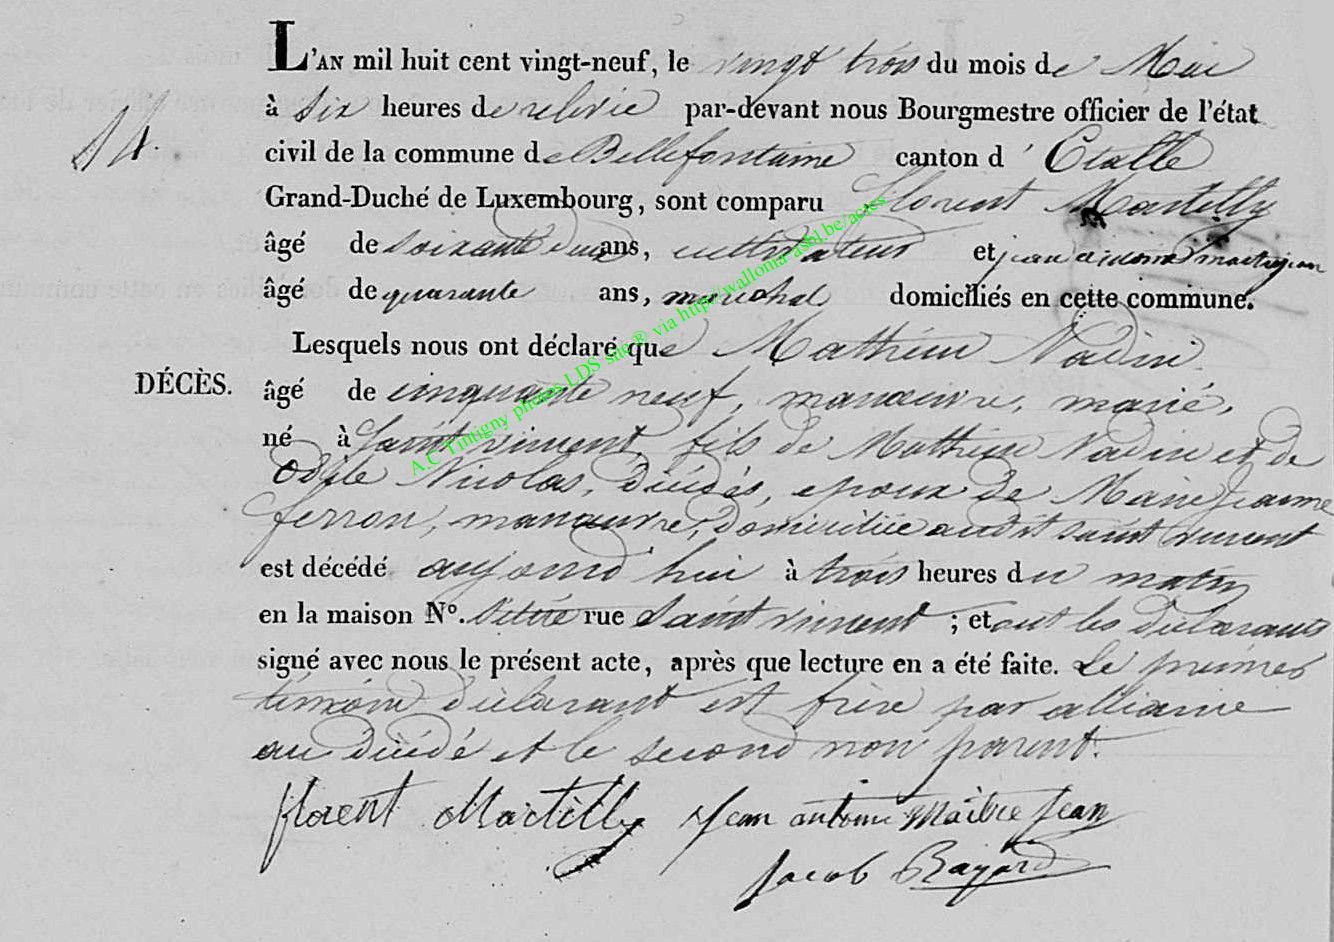 L'AN mil huit cent vingt-neuf, le vingt trois du mois de Mai
à six heures de relevée par-devant nous Bourgmestre officier de l'état
14.
civil de la commune de Bellefontaine canton d' Etalle
Grand-Duché de Luxembourg, sont comparu florent Martilly
âgé de soixante deux ans, cultivateur et jean antoine maitrejean
âgé de quarante ans, maréchal domiciliés en cette commune.
Lesquels nous ont déclaré que Mathieu Nadin
DÉCÈS. âgé de cinquante neuf, manœuvre, marié,
né à Saint vincent, fils de Mathieu Nadin et de
Odile Nicolas, décédés, epoux de Marie jeanne
ferron, manœuvre, domiciliée audit saint vincent
est décédé aujourd hui à trois heures du matin
en la maison N°. située rue Saint vincent ; et ont les déclarants
signé avec nous le présent acte, après que lecture en a été faite. Le premier
témoin déclarant est frère par alliance
au décédé et le second non parent.
florent Martilly Jean antoine Maitre Jean
Jacob Bayard
A.C Tintigny photos LDS site ® via http://wallonia-asbl.be/actes